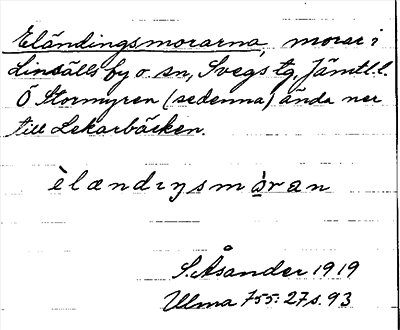 Eländingsmorarna, morar i
Linsälls by o. sn, Svegs tg, Jämtl. l.
Ö Stormyren (sedenna) ända ner
till Lekarbäcken.
èlændɪŋsmòran
S. Åsander 1919
Ulma 755:27 s. 93